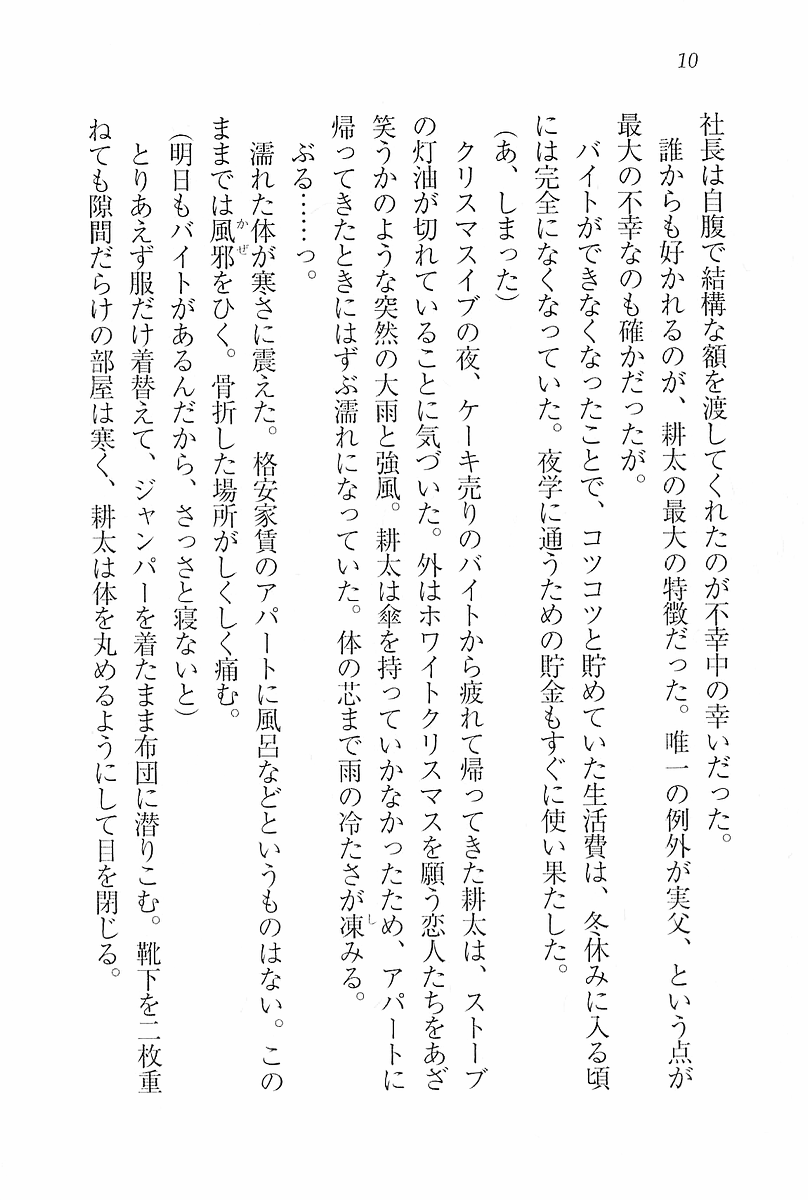 10
社長は自腹で結構な額を渡してくれたのが不幸中の幸いだった。
誰からも好かれるのが、耕太の最大の特徴だった。唯一の例外が実父、という点が
最大の不幸なのも確かだったが。
バイトができなくなったことで、コツコツと貯めていた生活費は、冬休みに入る頃
には完全になくなっていた。夜学に通うための貯金もすぐに使い果たした。
(あ、しまった)
クリスマスイブの夜、ケーキ売りのバイトから疲れて帰ってきた耕太は、ストーブ
の灯油が切れていることに気づいた。外はホワイトクリスマスを願う恋人たちをあざ
笑うかのような突然の大雨と強風。耕太は傘を持っていかなかったため、アパートに
帰ってきたときにはずぶ濡れになっていた。体の芯まで雨の冷たさが凍みる。
ぶる……っ。
濡れた体が寒さに震えた。格安家賃のアパートに風呂などというものはない。この
ままでは風邪をひく。骨折した場所がしくしく痛む。
(明日もバイトがあるんだから、さっさと寝ないと)
とりあえず服だけ着替えて、ジャンパーを着たまま布団に潜りこむ。靴下を二枚重
ねても隙間だらけの部屋は寒く、耕太は体を丸めるようにして目を閉じる。